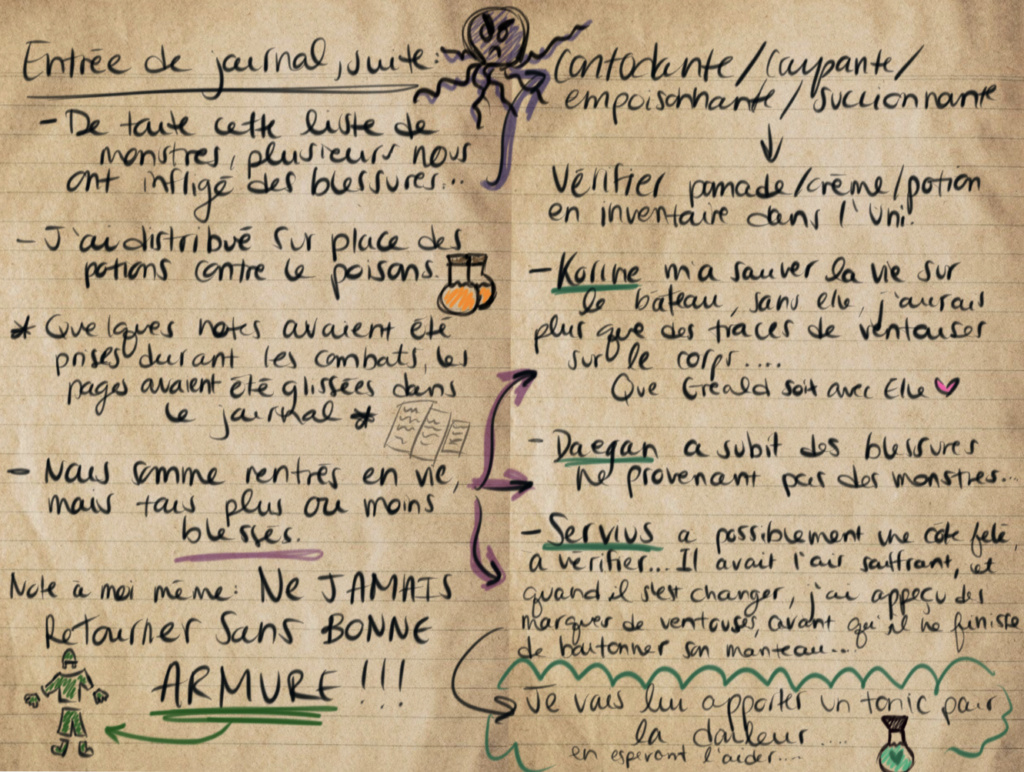 Entrée de journal, suite:
- De toute cette liste de
monstres, plusieurs nous
ont infligé des blessures...
- J'ai distribué sur place des
potions contre le poisons.
* Quelques notes avaient été
prises durant les combats, les
pages avaient été glissées dans
le journal *
- Nous somme rentrés en vie,
mais tous plus ou moins
blessés.
Note à moi même: Ne JAMAIS
Retourner Sans BONNE
ARMURE!!!
Contodante/Coupante/
empoisonnante/succionnante
Vérifier pomade/crème/potion
en inventaire dans l'Uni!
- Korine m'a sauver la vie sur
le bateau, sans elle, j'aurais
plus que des traces de ventouses
sur le corps....
Que Greald soit avec Elle
- Daegan a subit des blessures
ne provenant pas des monstres...
- Servius a possiblement une côte fêlé,
à vérifier... Il avait l'air souffrant, et
quand il s'est changer, j'ai apperçu des
marques de ventouses, avant qu'il ne finisse
de boutonner son manteau...
Je vais lui apporter un tonic pour
la douleur....
en espérant l'aider....